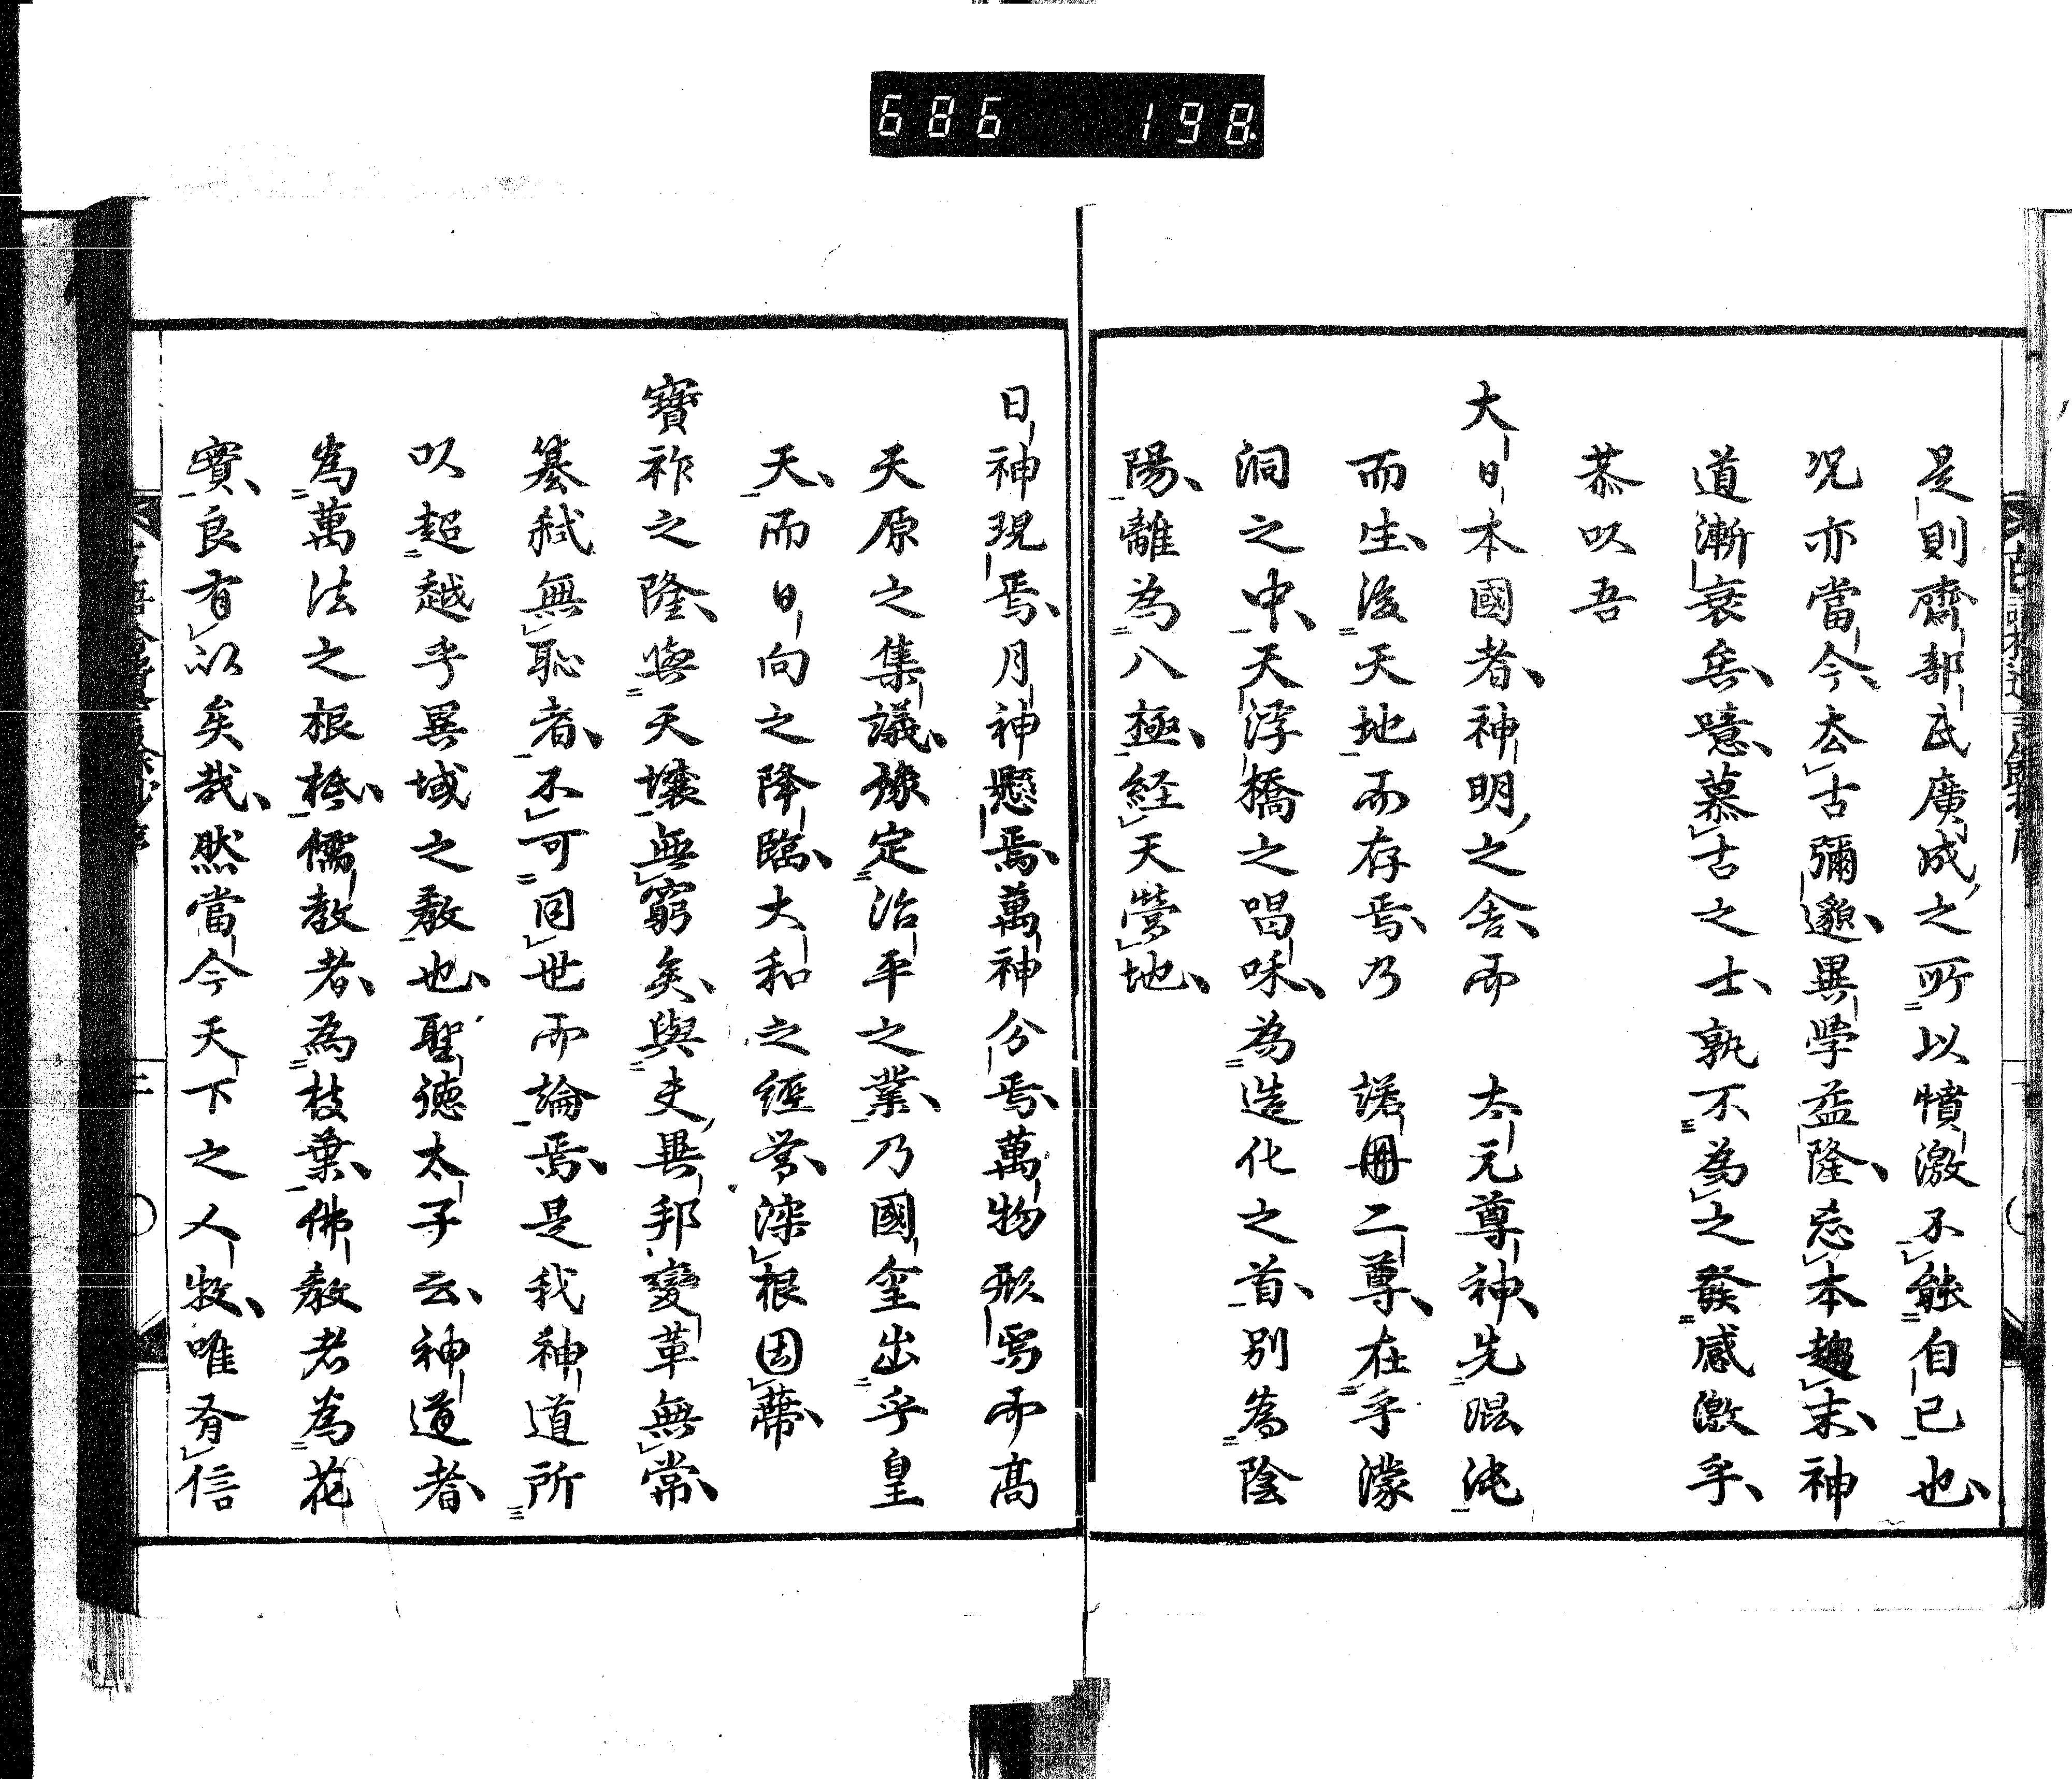 686 198
是則齋部氏廣成之所以憤激不能自已也
況亦當今去古彌邈異學益隆忘本趨末神
道漸衰矣噫慕古之士孰不為之發感激乎
恭以吾
大日本國者神明之舎而 太元尊神先混沌
而生後天地而存焉乃 諾冊二尊在乎濛
洞之中天浮橋之唱咊為造化之首別為陰
陽離為八極経天營地
日神現焉月神懸焉萬神分焉萬物形焉而高
天原之集議豫定治平之業乃國室出乎皇
天而日向之降臨大和之經営深根固蔕
寶祚之隆與天壤無窮矣與夫異邦變革無常
簒弑無恥者不可同世而論焉是我神道所
以超越乎異域之教也聖徳太子云神道者
為萬法之根柢儒教者為枝葉佛教者為花
實良有以矣哉然當今天下之人牧唯有信